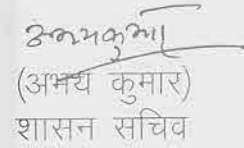 अभयकुमार
(अभय कुमार)
शासन सचिव